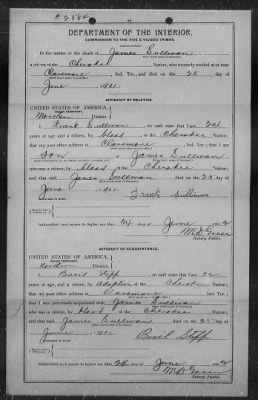 # 2584
DEPARTMENT OF THE INTERIOR,
COMMISSION TO THE FIVE CIVILIZED TRIBES.
In the matter of the death of James Sullivan
a citizen of the Cherokee Nation, who formerly resided at or near
Claremore, Ind. Ter., and died on the 25 day of
June, 1901
AFFIDAVIT OF RELATIVE.
UNITED STATES OF AMERICA,
INDIAN TERRITORY,
Northern District.
I, Frank Sullivan, on oath state that I am 24
years of age and a citizen, by blood, of the Cherokee Nation;
that my post office address is Claremore, Ind. Ter.; that I am
Son of James Sullivan
who was a citizen, by blood, of the Cherokee Nation;
and that said James Sullivan died on the 25 day of
June, 1901
Frank Sullivan
Subscribed and sworn to before me this 24 day of June 1902
Notary Public.
AFFIDAVIT OF ACQUAINTANCE.
UNITED STATES OF AMERICA,
INDIAN TERRITORY,
Northern District.
I, on oath state that I am 32
years of age, and a citizen by adoption of the Cherokee Nation;
that my post office address is Claremore, Ind. Ter.;
that I was personally acquainted with James Sullivan
who was a citizen, by blood, of the Cherokee Nation;
and that said James Sullivan died on the 25 day of
June, 1901
Subscribed and sworn to before me this 24 day of June 1902
Notary Public.